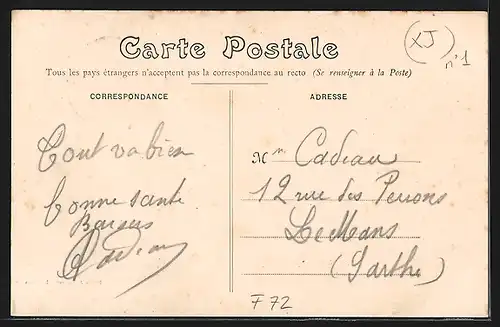 Carte Postale
(XJ)
n°1
Tous les pays étrangers n'acceptent pas la correspondance au recto (Se renseigner à la Poste)
CORRESPONDANCE
Tout va bien
bonne sante
Baisers
Cadeau
ADRESSE
Mme Cadeau
12 rue des Perrons
Le Mans
(Sarthe)
F 72